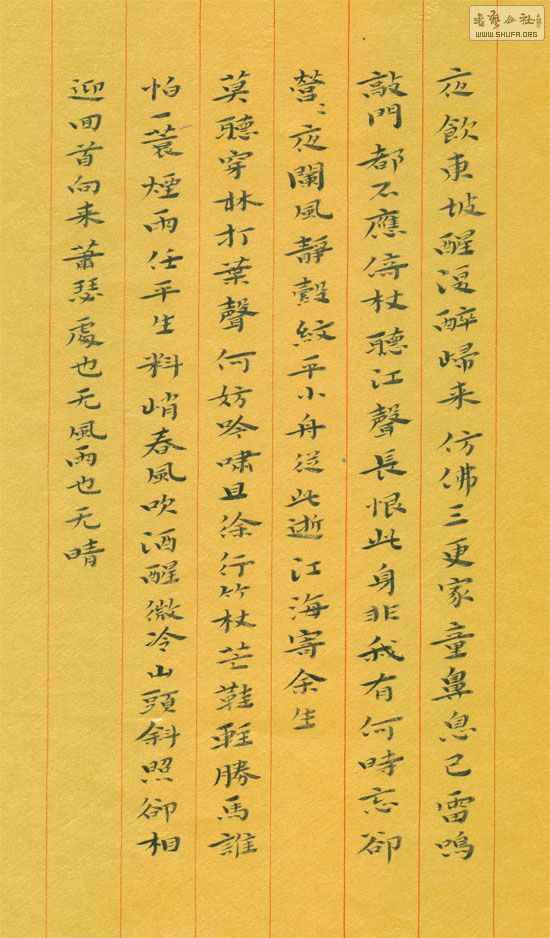 夜飲東坡醒復醉歸来仿佛三更家童鼻息已雷鳴
敲門都不應倚杖聽江聲長恨此身非我有何時忘卻
營〻夜闌風靜縠紋平小舟從此逝江海寄余生
莫聽穿林打葉聲何妨吟嘯且徐行竹杖芒鞋輕勝馬誰
怕一蓑煙雨任平生料峭春風吹酒醒微冷山頭斜照卻相
迎回首向来蕭瑟處也无風雨也无晴
WWW.SHUFA.ORG